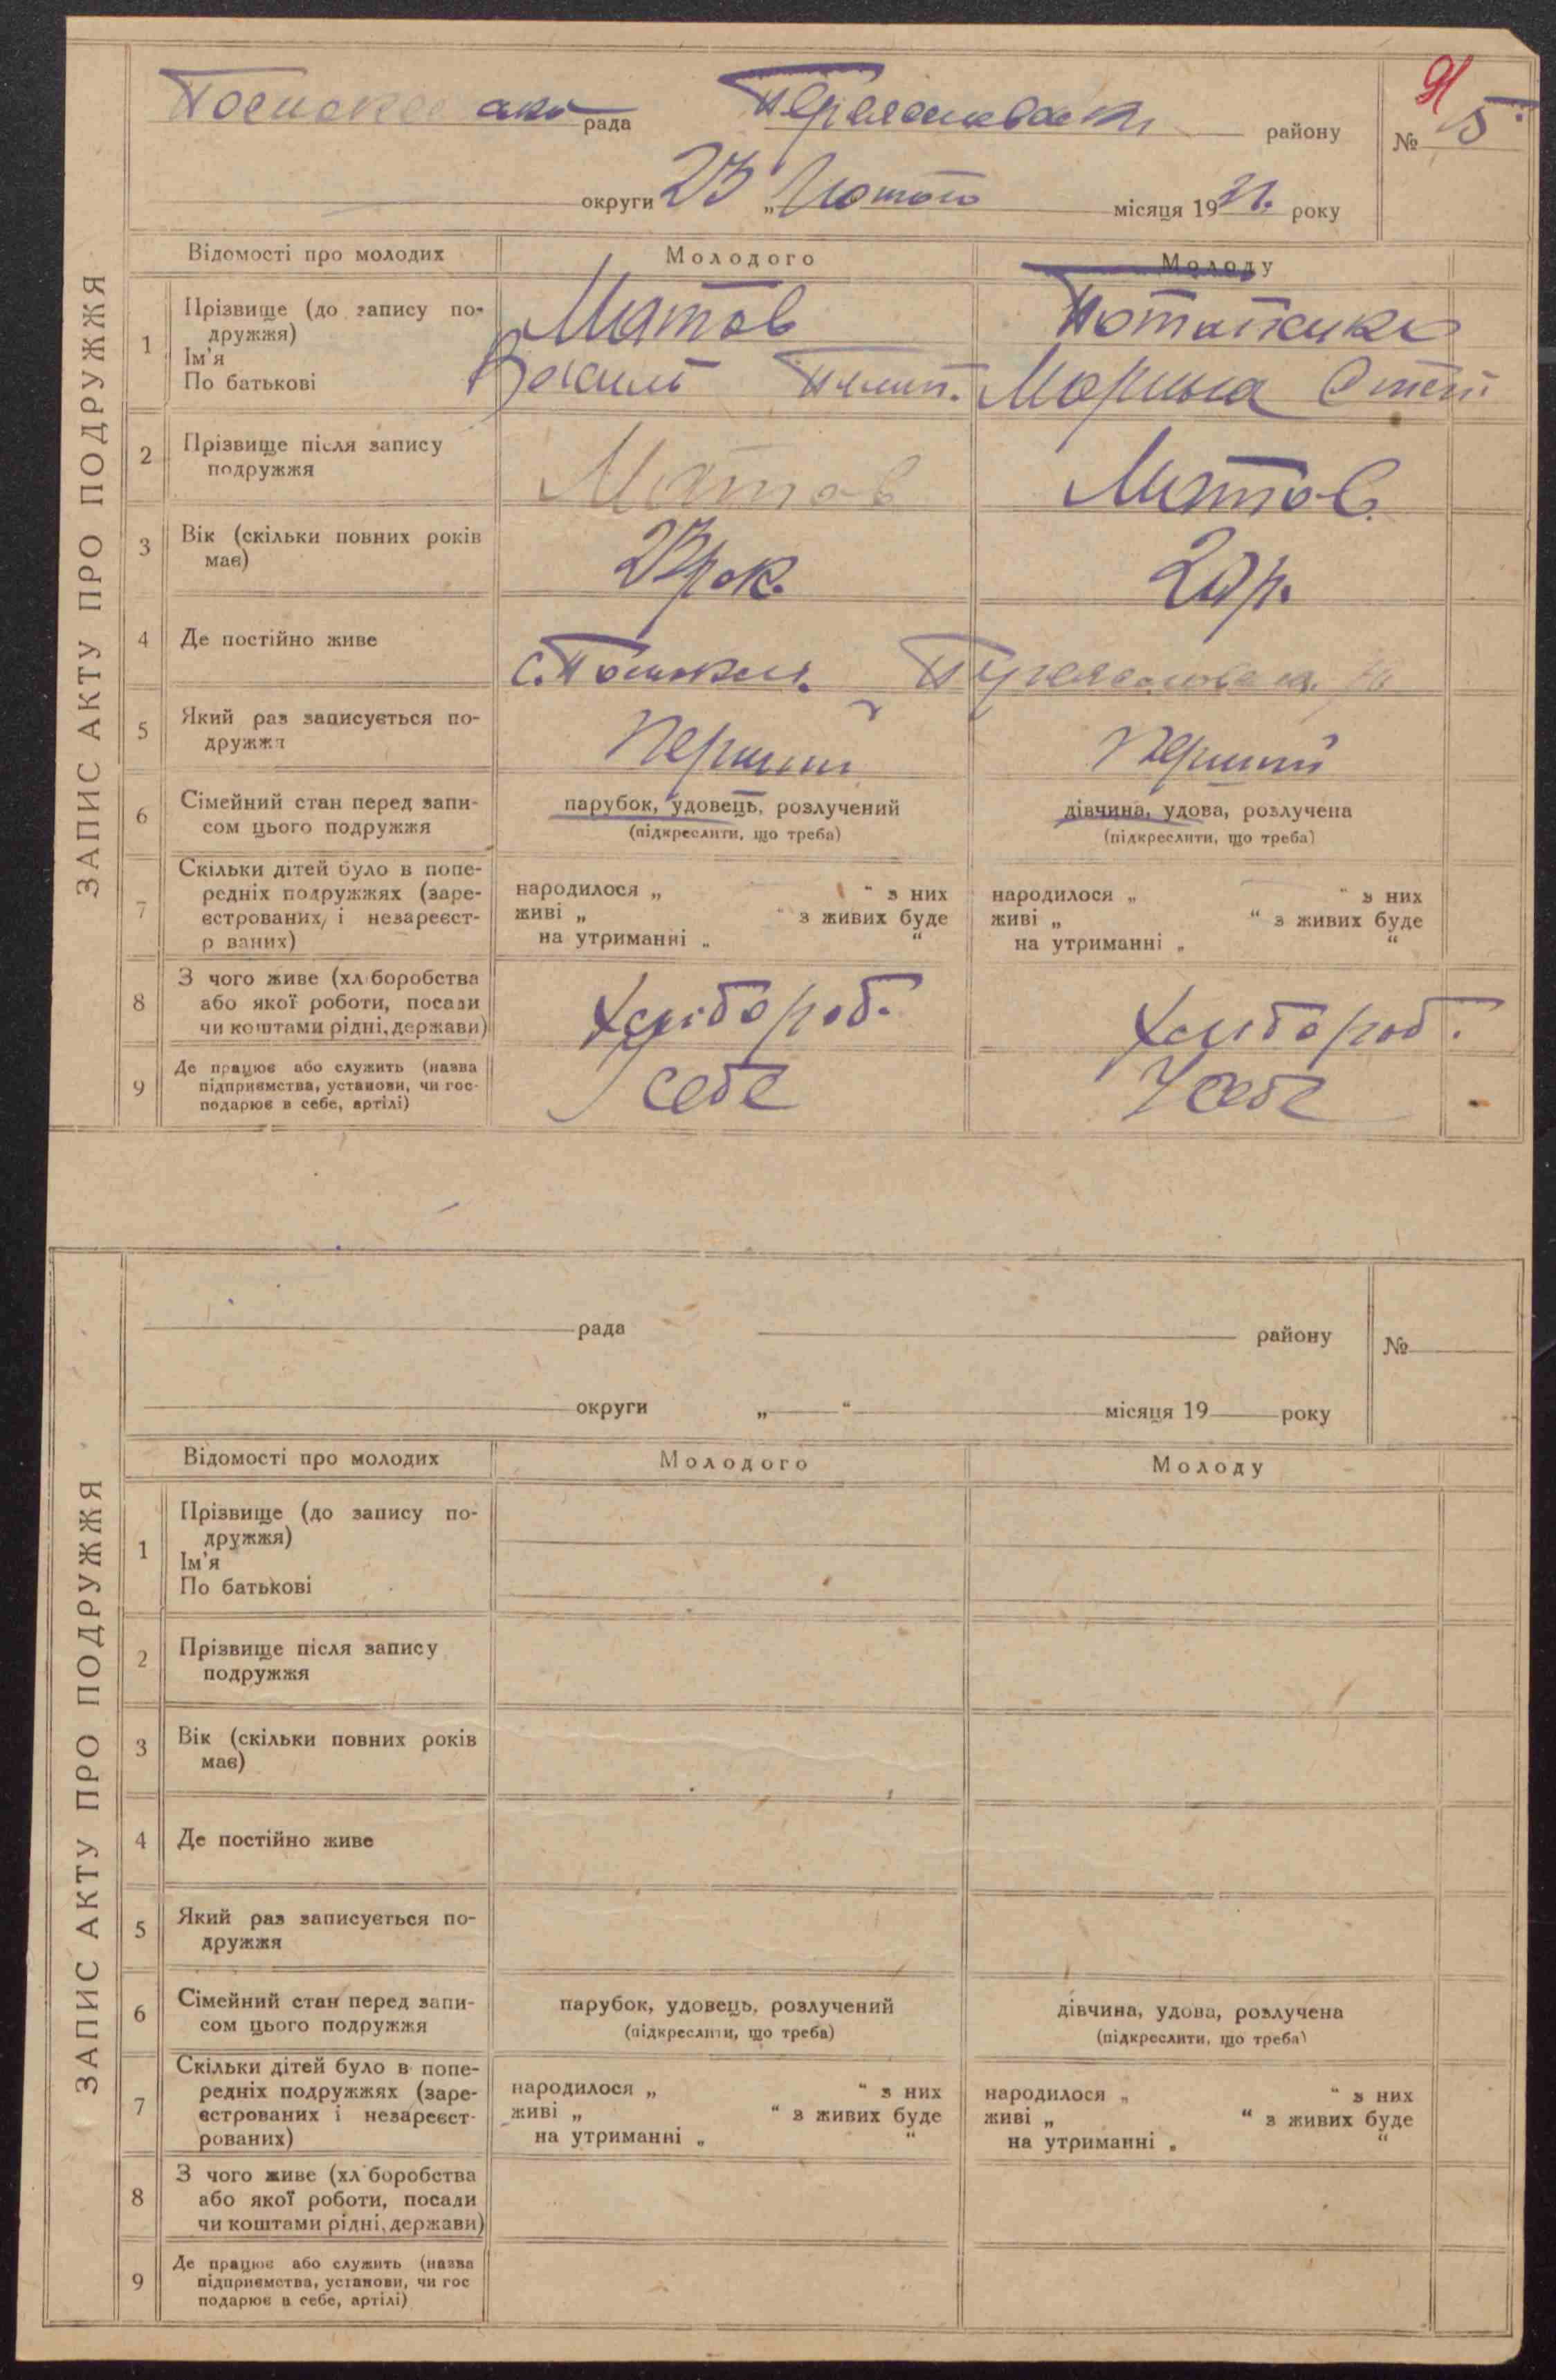 91
рада району № 5
округи 23 „ Лютого місяця 1931. року
ЗАПИС АКТУ ПРО ПОДРУЖЖЯ
Відомості про молодих Молодого Молоду
1 Прізвище (до запису по-
дружжя)
Ім'я
По батькові
Мятов
Василь Пилип.
Потапенко
Марина Степ.
2 Прізвище після запису
подружжя
Мятов Мятов.
3 Вік (скільки повних років
має)
23 рок. 20 р.
4 Де постійно живе
с.
5 Який раз записується по-
дружжя
Перший Перший
6 Сімейний стан перед запи-
сом цього подружжя
парубок, удовець, розлучений
(підкреслити, що треба)
дівчина, удова, розлучена
(підкреслити, що треба)
7 Скільки дітей було в попе-
редніх подружжях (заре-
єстрованих і незареєст-
р ваних)
народилося „ “ з них
живі „ “ з живих буде
на утриманні „ “
народилося „ “ з них
живі „ “ з живих буде
на утриманні „ “
8 З чого живе (хл боробства
або якої роботи, посади
чи коштами рідні, держави)
Хлібороб. Хлібороб.
9 Де працює або служить (назва
підприємства, установи, чи гос-
подарює в себе, артілі)
У себе У себе
ЗАПИС АКТУ ПРО ПОДРУЖЖЯ
рада району №
округи „ “ місяця 19 року
Відомості про молодих Молодого Молоду
1 Прізвище (до запису по-
дружжя)
Ім'я
По батькові
2 Прізвище після запису
подружжя
3 Вік (скільки повних років
має)
4 Де постійно живе
5 Який раз записується по-
дружжя
6 Сімейний стан перед запи-
сом цього подружжя
парубок, удовець, розлучений
(підкреслити, що треба)
дівчина, удова, розлучена
(підкреслити, що треба)
7 Скільки дітей було в попе-
редніх подружжях (заре-
єстрованих і незареєст-
рованих)
народилося „ “ з них
живі „ “ з живих буде
на утриманні „ “
народилося „ “ з них
живі „ “ з живих буде
на утриманні „ “
8 З чого живе (хл боробства
або якої роботи, посади
чи коштами рідні, держави)
9 Де працює або служить (назва
підприємства, установи, чи гос
подарює в себе, артілі)